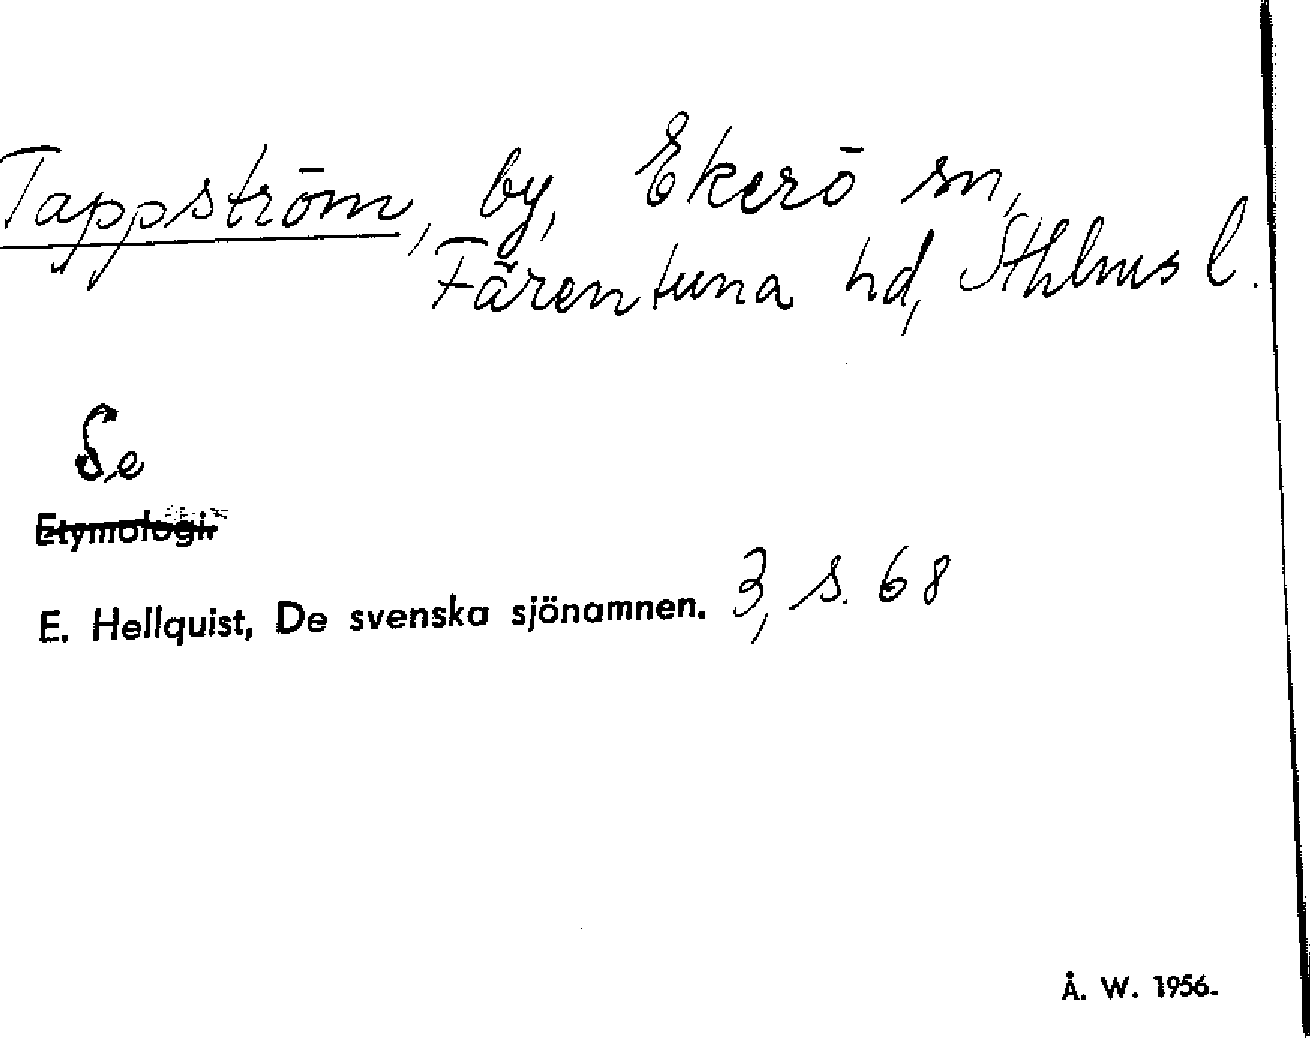 Tappström, by, Ekerö sn,
Färentuna hd, Sthlms l.
Se
Etymologi:
E. Hellquist, De svenska sjönamnen. 3, s. 68
Å. W. 1956.